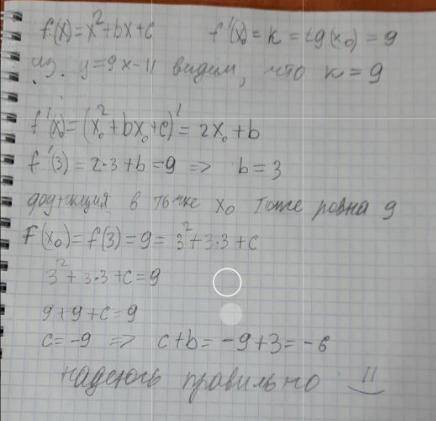 f(x)=x²+bx+c f'(x₀)=k=tg(x₀)=9
из. y=9x-11 видем, что k=9
f'(x₀)=(x₀²+bx₀+c)'=2x₀+b
f'(3)=2·3+b=9 => b=3
функция в точке x₀ тоже ровна 9
F(x₀)=f(3)=9=3²+3·3+c
3²+3·3+c=9
9+9+c=9
c=-9 => c+b=-9+3=-6
надеюсь правильно